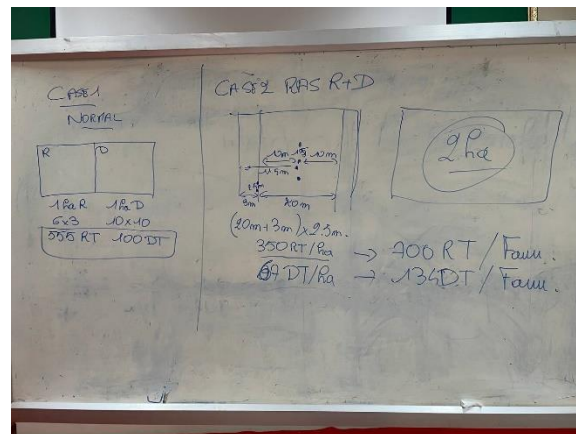 CASE 1
NORMAL
R D
1ha R 1ha D
6x3 10x10
555 RT 100 DT
CASE 2 RAS R+D
20m
3m
(20m+3m) x 2.5m.
350 RT/ha → 700 RT / Fam.
67 DT/ha → 134 DT / Fam.
2ha